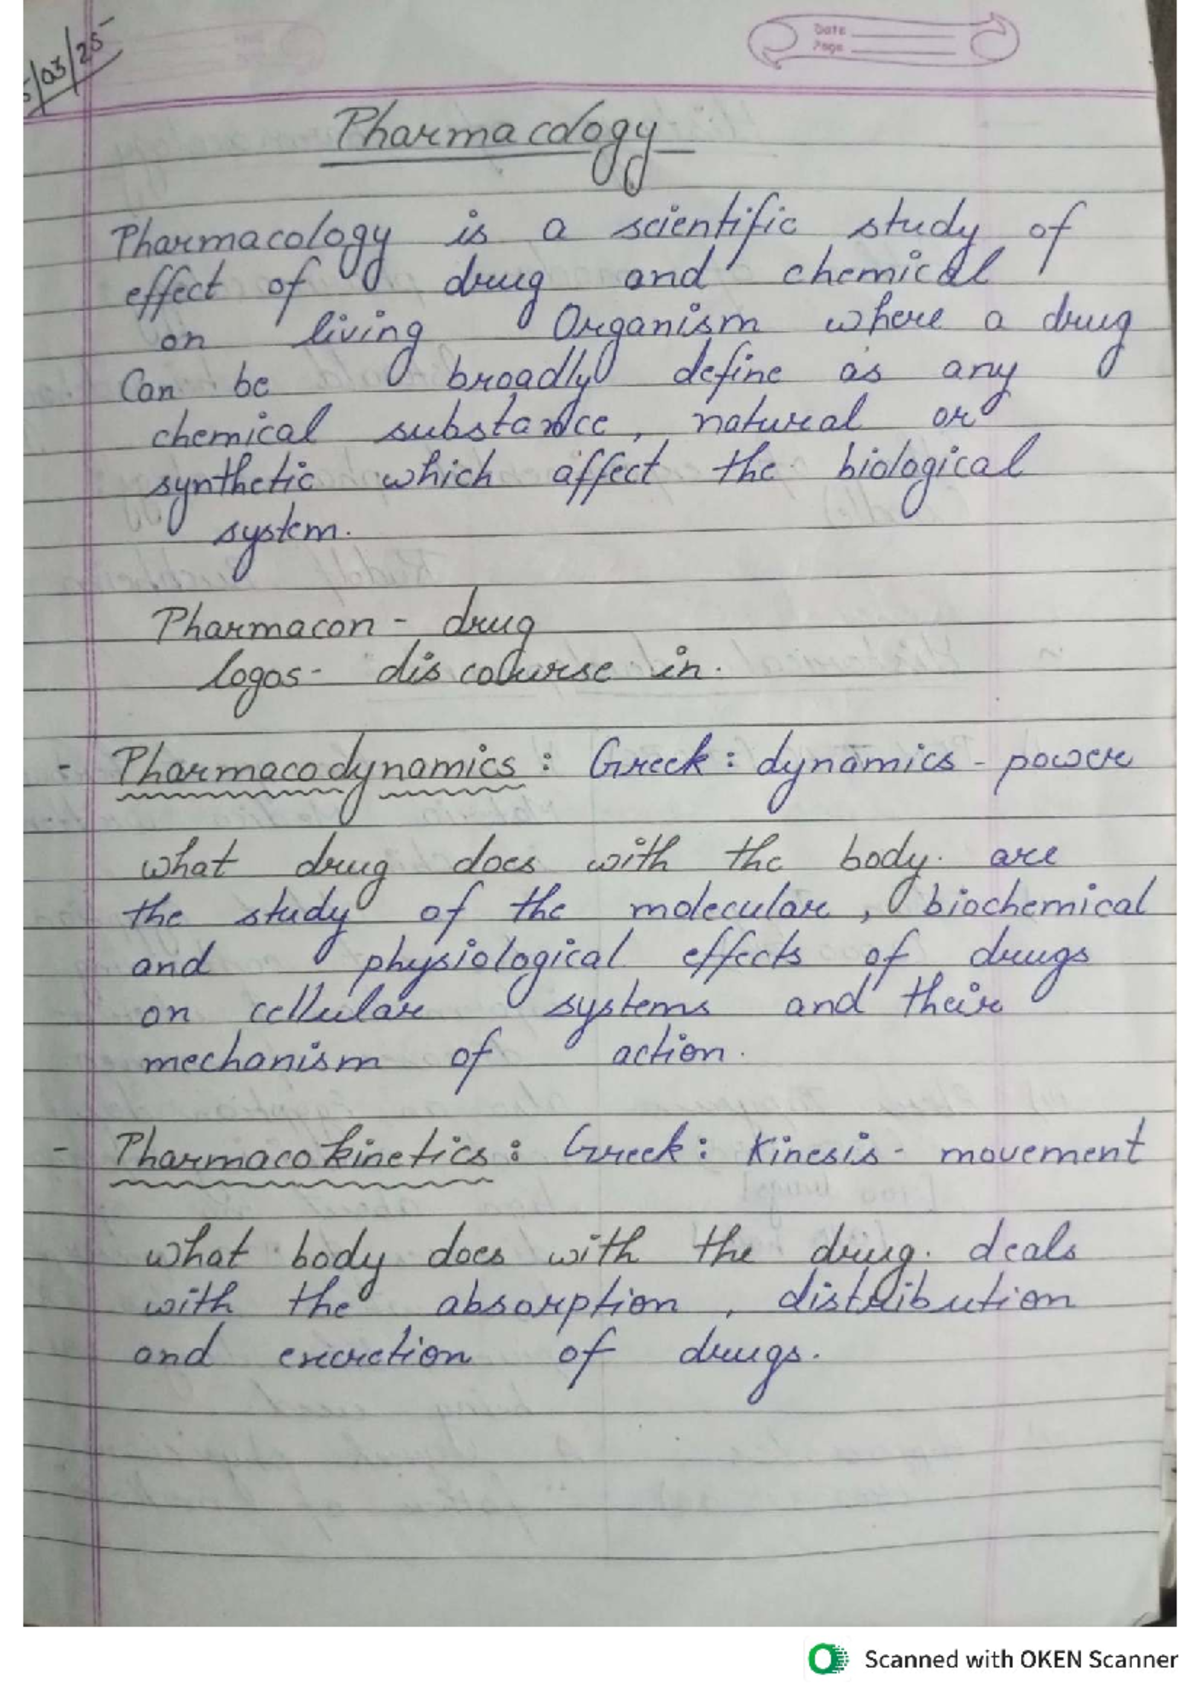 5/03/25
Date
Page
Pharmacology
Pharmacology is a scientific study of
effect of drug and chemical
on living Organism where a drug
Can be broadly define as any
chemical substance, natural or
synthetic which affect the biological
system.
Pharmacon - drug
logos - discourse in.
- Pharmacodynamics : Greek : dynamics - power
what drug does with the body. are
the study of the molecular, biochemical
and physiological effects of drugs
on cellular systems and their
mechanism of action.
- Pharmacokinetics : Greek : Kinesis - movement
what body does with the drug. deals
with the absorption, distribution
and excretion of drugs.
Scanned with OKEN Scanner